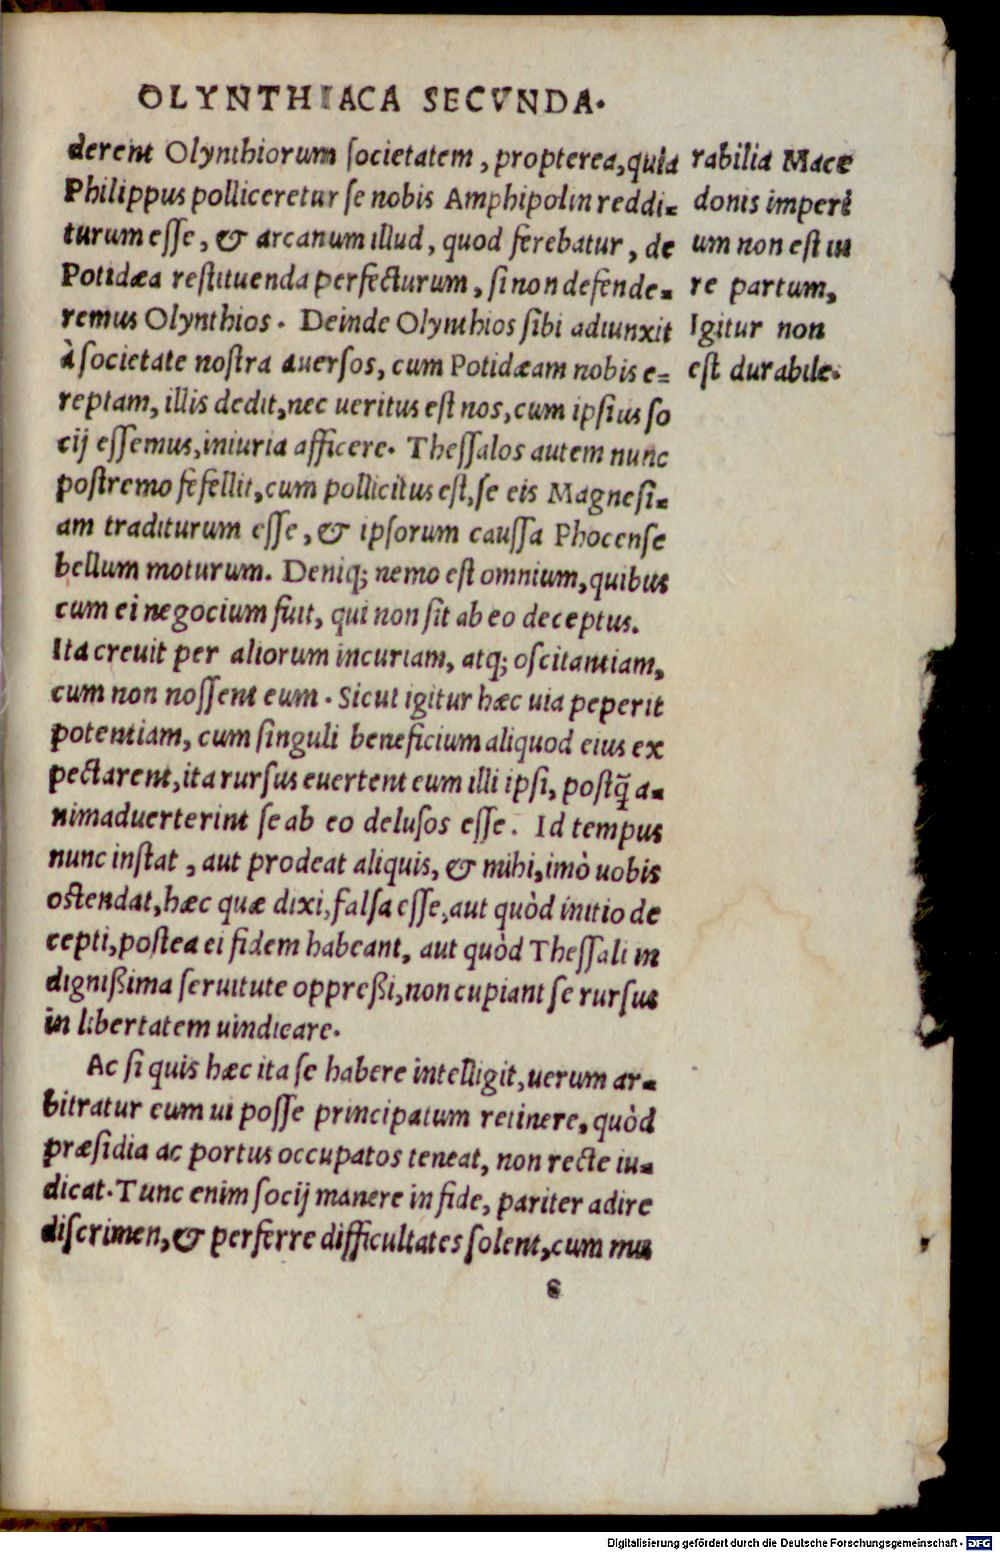 OLYNTHIACA SECVNDA.
derent Olynthiorum ſocietatem, propterea, quia
Philippus polliceretur ſe nobis Amphipolin reddi-
turum eſſe, & arcanum illud, quod ferebatur, de
Potidæa reſtituenda perfecturum, ſi non defende-
remus Olynthios. Deinde Olynthios ſibi adiunxit
à ſocietate noſtra auerſos, cum Potidæam nobis e-
reptam, illis dedit, nec ueritus eſt nos, cum ipſius ſo
cij eſſemus, iniuria afficere. Theſſalos autem nunc
poſtremo fefellit, cum pollicitus eſt, ſe eis Magneſi-
am traditurum eſſe, & ipſorum cauſſa Phocenſe
bellum moturum. Deniq; nemo eſt omnium, quibus
cum ei negocium fuit, qui non ſit ab eo deceptus.
Ita creuit per aliorum incuriam, atq; oſcitantiam,
cum non noſſent eum. Sicut igitur hæc uia peperit
potentiam, cum ſinguli beneficium aliquod eius ex
pectarent, ita rurſus euertent eum illi ipſi, poſtq̃ a-
nimaduerterint ſe ab eo deluſos eſſe. Id tempus
nunc inſtat, aut prodeat aliquis, & mihi, imò uobis
oſtendat, hæc quæ dixi, falſa eſſe, aut quòd initio de
cepti, poſtea ei fidem habeant, aut quòd Theſſali in
dignißima ſeruitute oppreßi, non cupiant ſe rurſus
in libertatem uindicare.
Ac ſi quis hæc ita ſe habere intelligit, uerum ar-
bitratur eum ui poſſe principatum retinere, quòd
præſidia ac portus occupatos teneat, non recte iu-
dicat. Tunc enim ſocij manere in fide, pariter adire
diſcrimen, & perferre difficultates ſolent, cum mu
s
rabilia Mace
donis imperi
um non eſt iu
re partum,
Igitur non
eſt durabile.
Digitalisierung gefördert durch die Deutsche Forschungsgemeinschaft - DFG